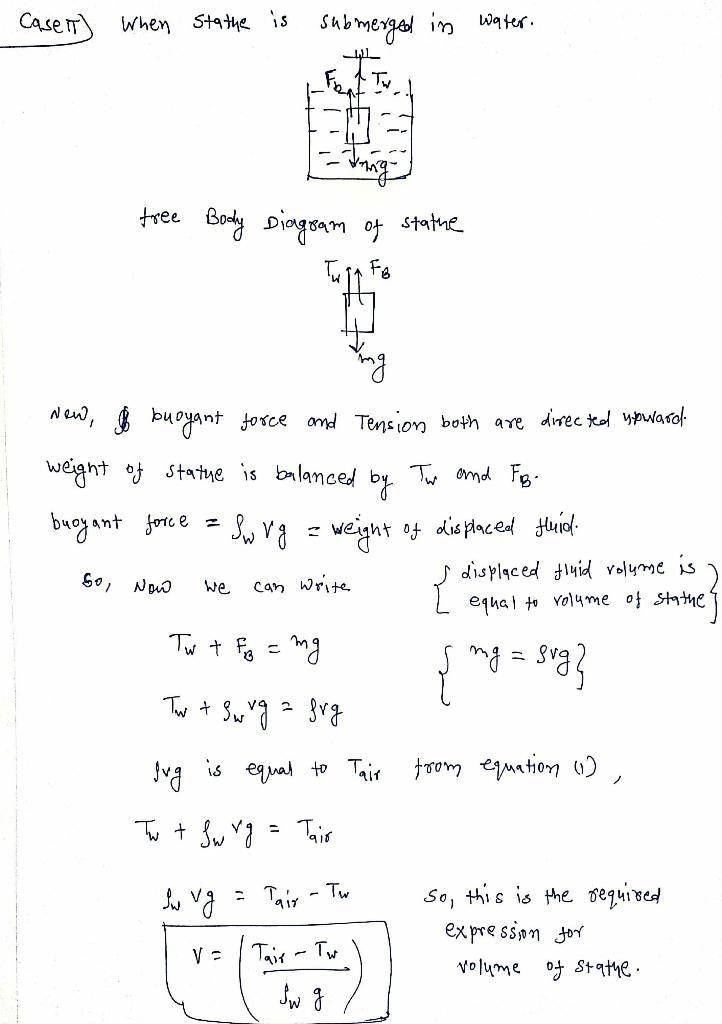 Case II) When statue is submerged in water.
FB Tw
mg
free Body Diagram of statue
Tw FB
mg
Now, buoyant force and Tension both are directed upward.
weight of statue is balanced by Tw and FB.
buoyant force = ρw Vg = weight of displaced fluid.
So, Now we can write { displaced fluid volume is
equal to volume of statue }
Tw + FB = mg { mg = ρvg }
Tw + ρw vg = ρvg
ρvg is equal to Tair from equation (1),
Tw + ρw vg = Tair
ρw vg = Tair - Tw So, this is the required
expression for
V = ( Tair - Tw / ρw g ) volume of statue.